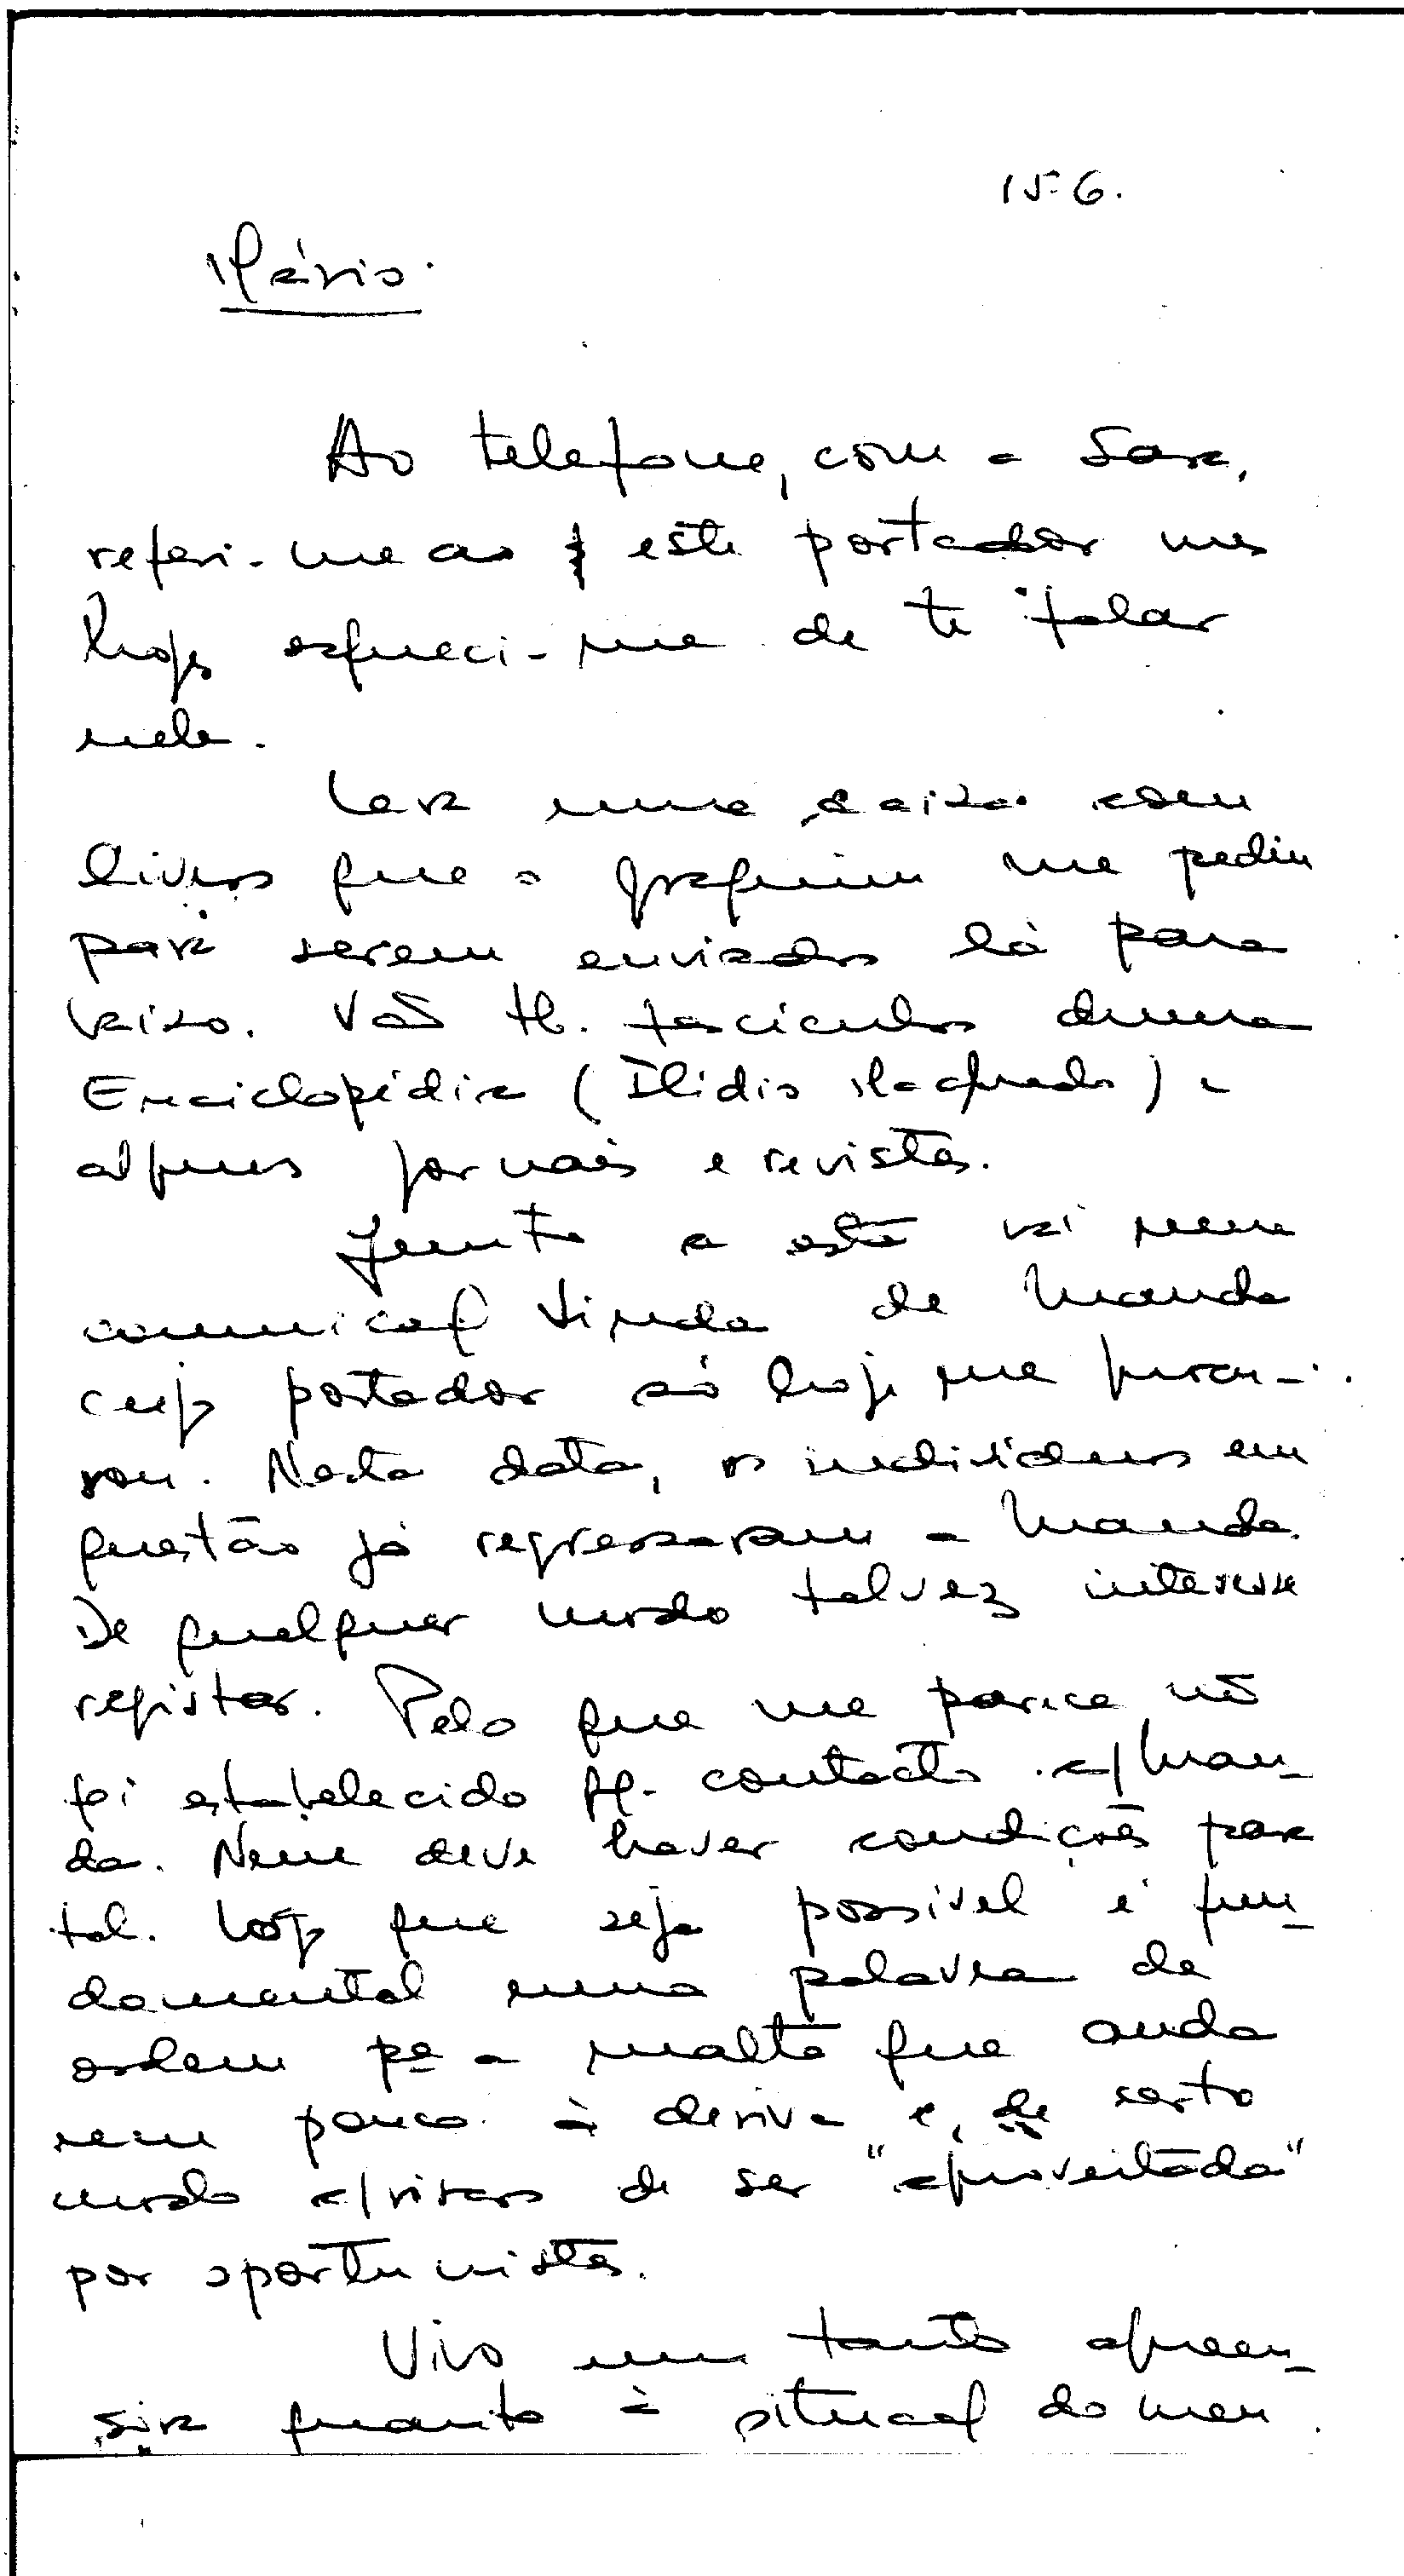 15-6.
Mário.
Ao telefone, com a Sara,
referi-me ao este portador mas
hoje esqueci-me de te falar
nele.
Leva uma caixa com
livros que o Joaquim me pediu
para serem enviados lá para
baixo. Vão tb. fascículos duma
Enciclopédia (Ilídio Machado) e
alguns jornais e revistas.
Junto a esta vai uma
comunicaç vinda de Luanda
cujo portador só hoje me procu-
rou. Nesta data, os indivíduos em
questão já regressaram a Luanda.
De qualquer modo talvez interesse
registar. Pelo que me parece não
foi estabelecido qq. contacto c/ Luan-
da. Nem deve haver condições para
tal. Logo que seja possível é fun-
damental uma palavra de
ordem pª a malta que anda
um pouco à deriva e, de certo
modo c/ riscos de ser "aproveitada"
por oportunistas.
Vivo um tanto apreen-
siva quanto à situaç do meu